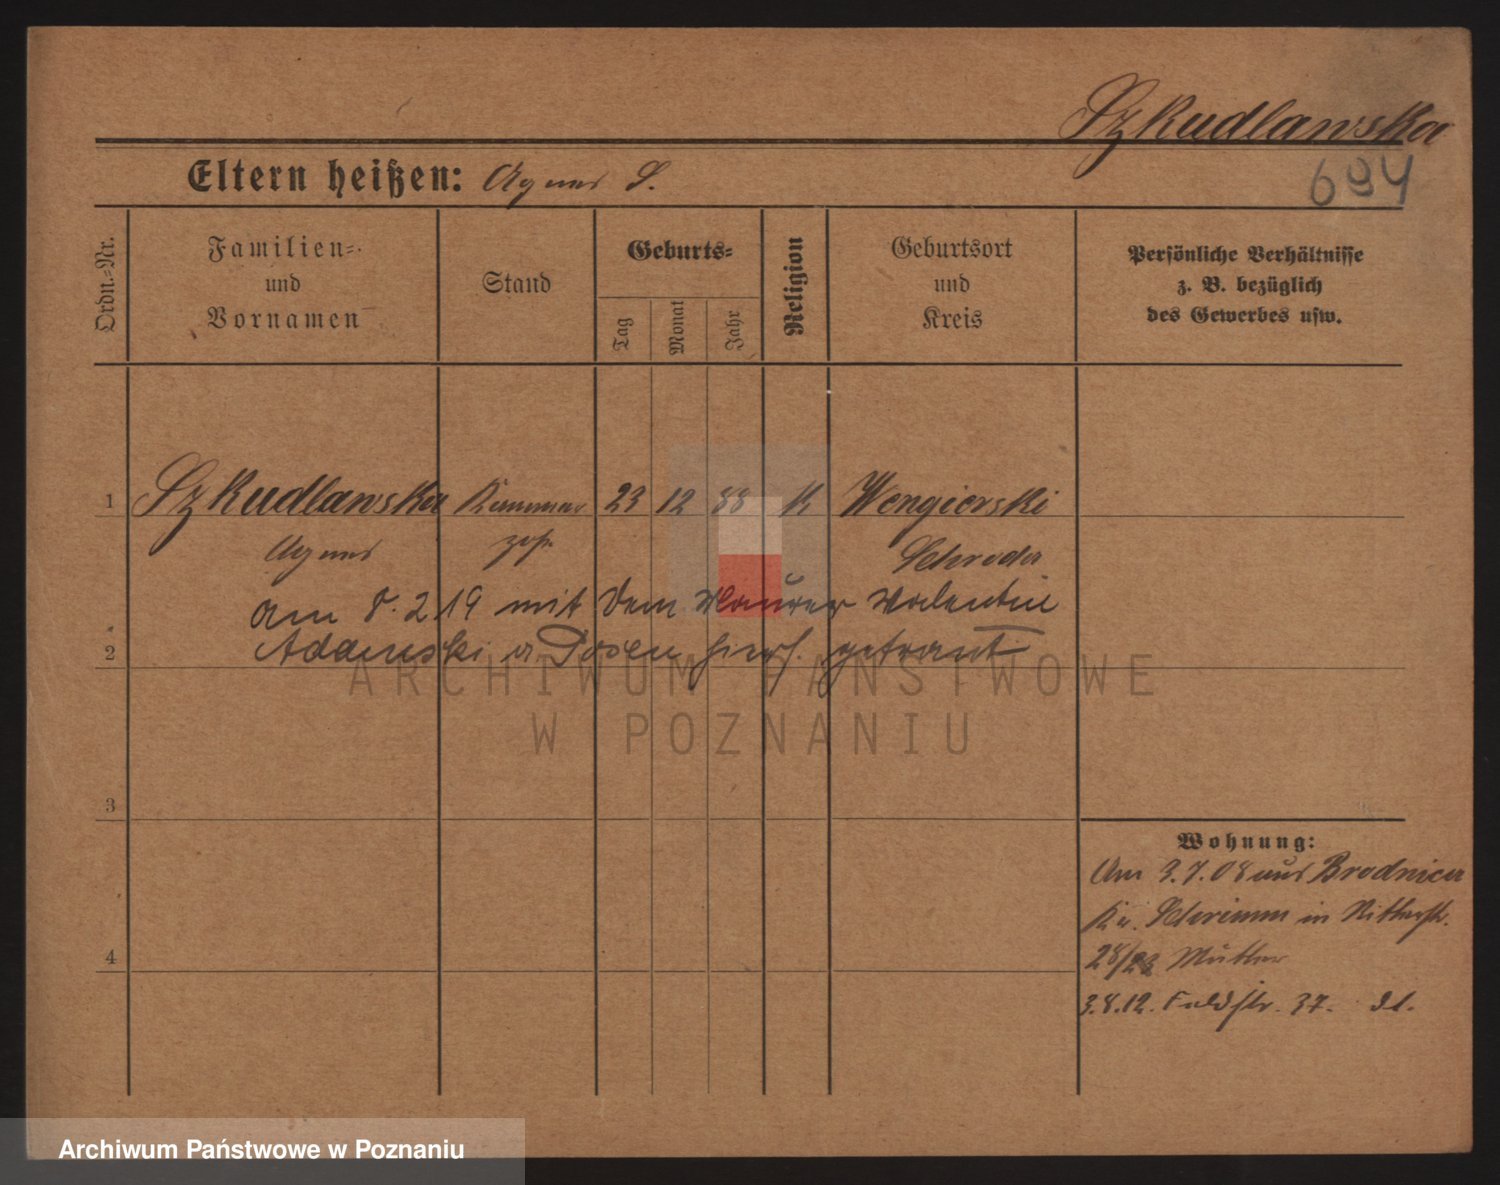 Szkudlawska
694
Eltern heißen: Agnes S.
Ordn.=Nr.
Familien=
und
Vornamen
Stand
Geburts=
Tag
Monat
Jahr
Religion
Geburtsort
und
Kreis
Persönliche Verhältnisse
z. B. bezüglich
des Gewerbes usw.
1 Szkudlawska 23 12 88 K Wengierski
Agnes Schroda
am 8. 2 19 mit dem Maurer Valentin
2 Adamski a Posen hier getraut
3
4
Wohnung:
Am 3.7.08 aus Brodnica
Kr. Schrimm in Ritterstr.
28/23 Mutter
3.8.12. Feldstr. 37.
ARCHIWUM PAŃSTWOWE
W POZNANIU
Archiwum Państwowe w Poznaniu